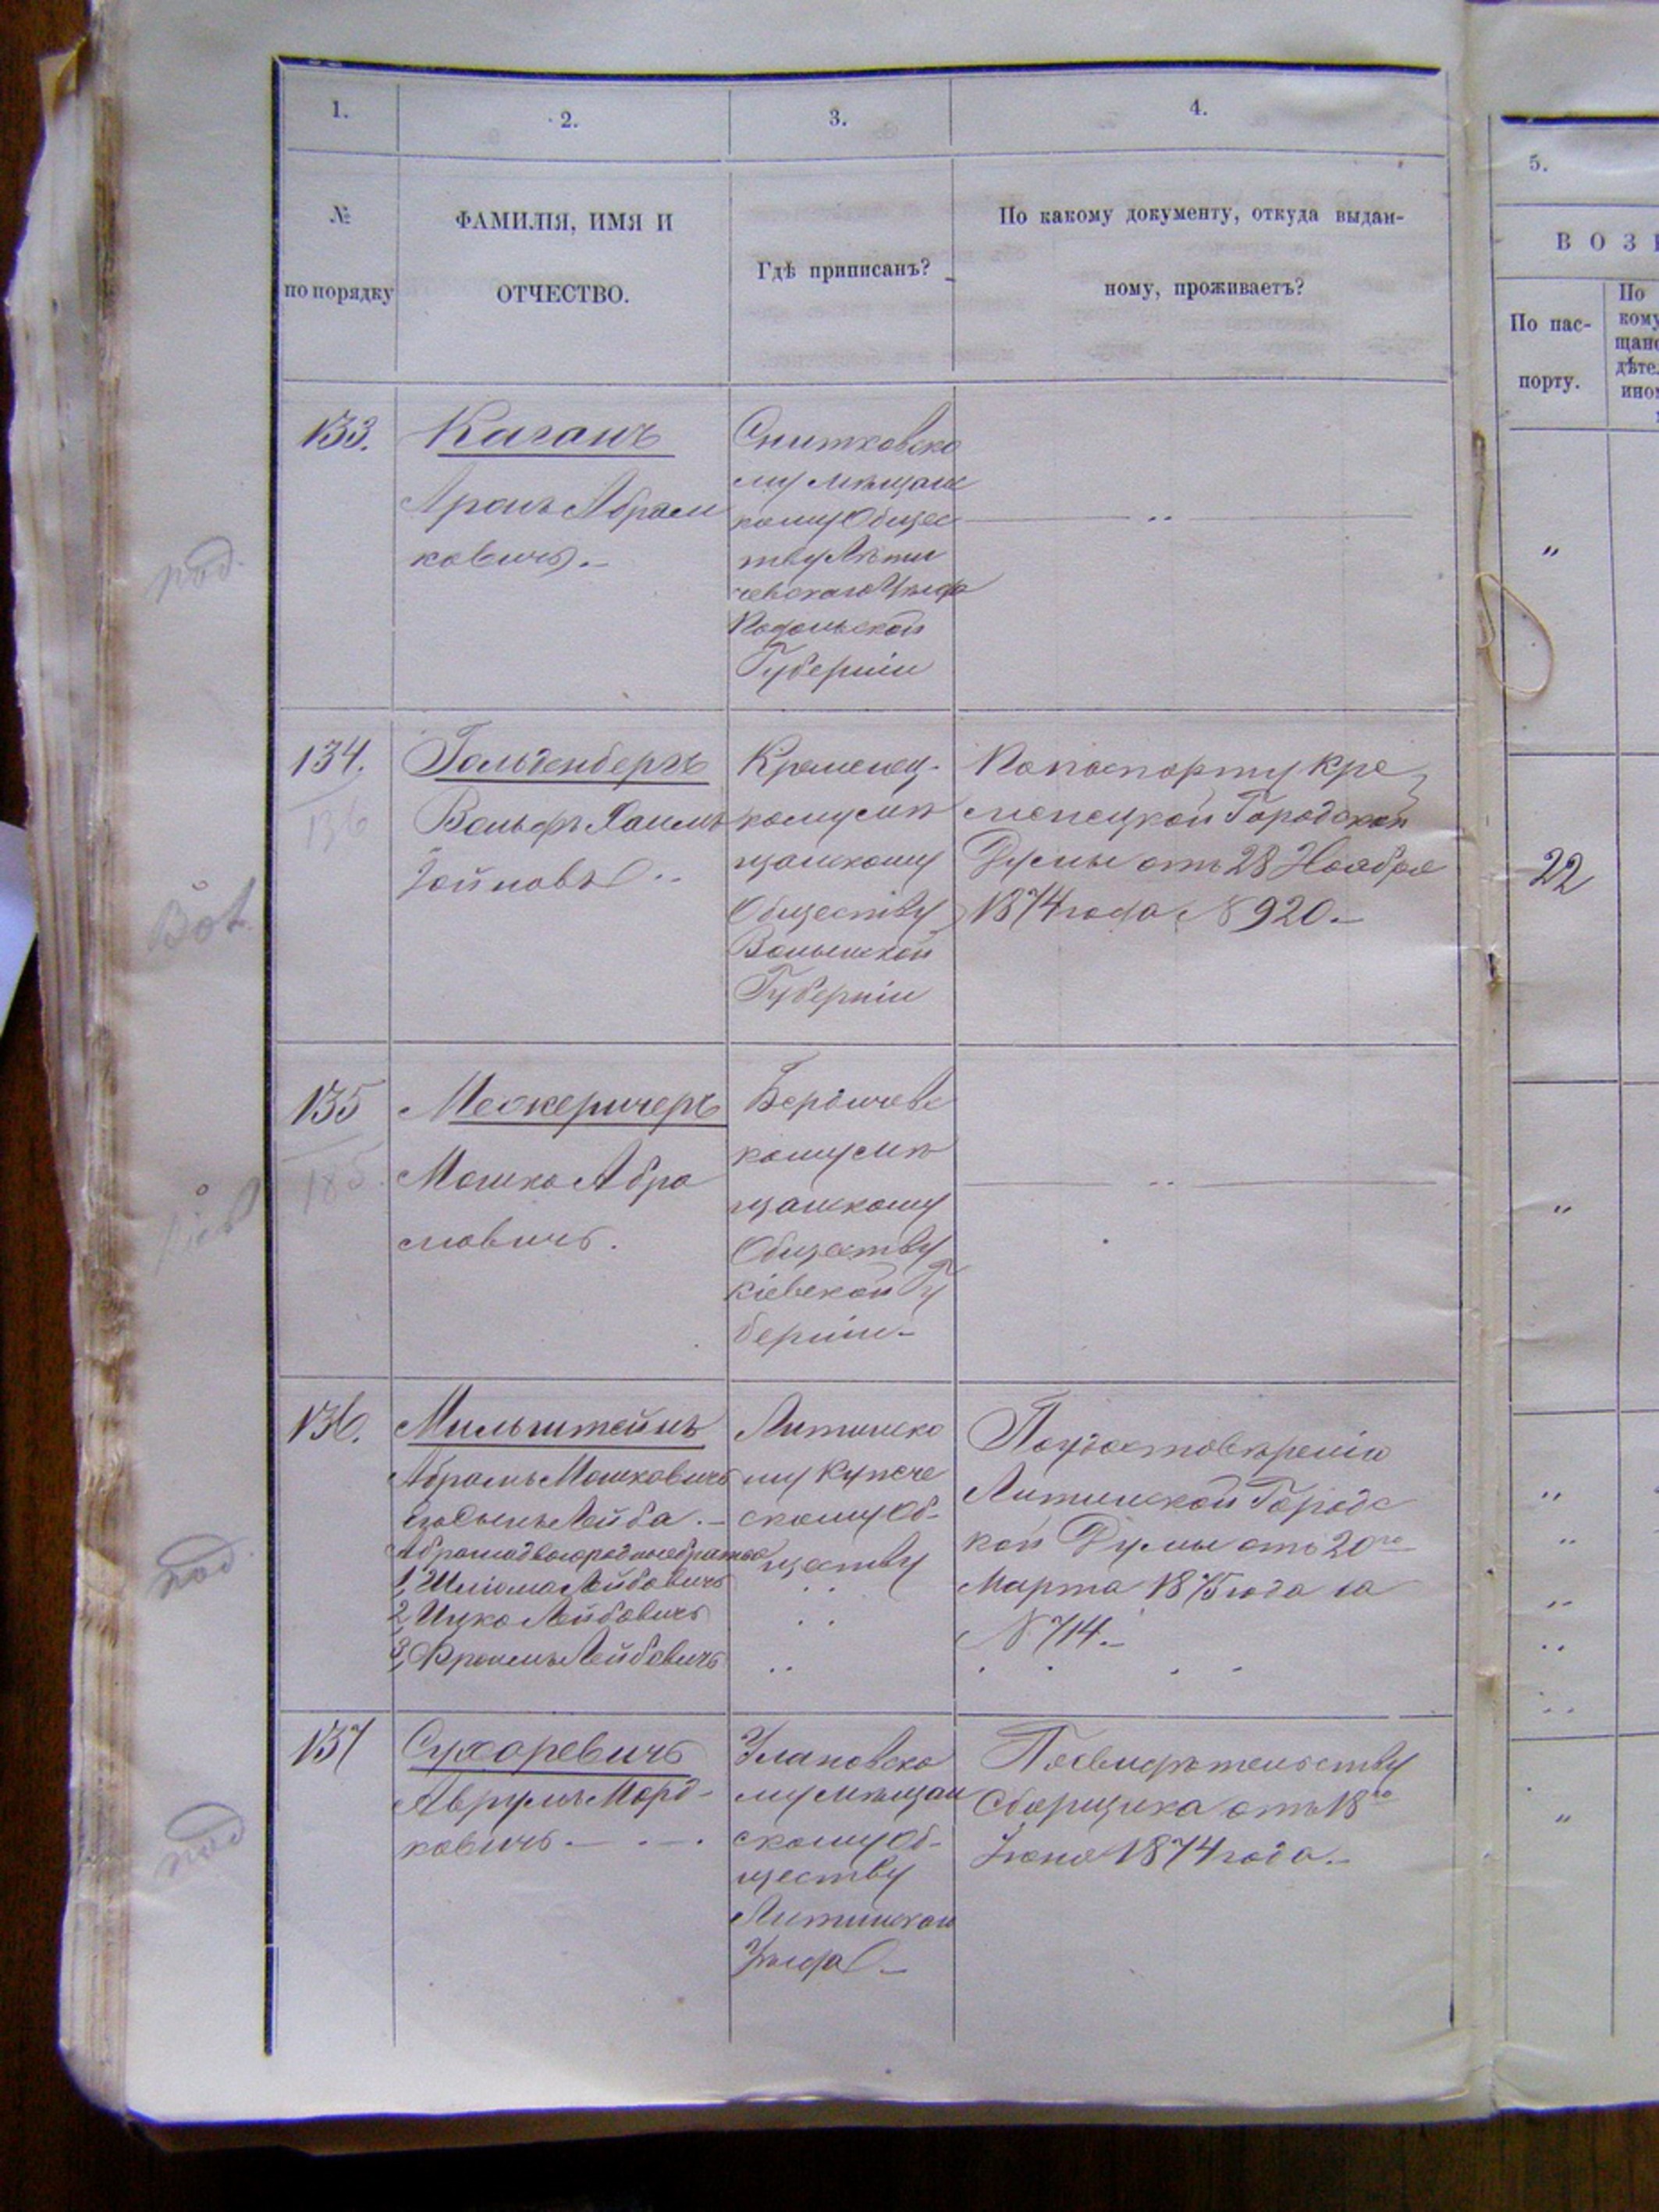 1.
2.
3.
4.
№
по порядку
ФАМИЛІЯ, ИМЯ И
ОТЧЕСТВО.
Гдѣ приписанъ?
По какому документу, откуда выдан-
ному, проживаетъ?
5.
ВОЗ
По пас-
порту.
По
кому
щан
дѣте
ино
133.
Каганъ
Аронъ Абрам
ковичъ.-
Снитковско
му мѣщанс
кому Общес
тву Лѣти
чевскаго Уѣзда
Подольской
Губерніи
под.
"
134.
136
Гольденбергъ
Вольфъ Хаимъ
Кременец-
кому мѣ
щанскому
Обществу
Волынской
Губерніи
По паспорту Кре
менецкой Городской
Думы отъ 28 Ноября
1874 года № 920.-
Вол.
22
135
185.
Межеричеръ
Мошко Абра
мовичъ.
Бердичевс
кому мѣ
щанскому
Обществу
Кіевской Гу
берніи-
"
136.
Мильштейнъ
Абрамъ Мошковичъ
его сынъ Лейба.-
Абрама двоюродные братья
1, Шліома Лейбовичъ
2, Ицко Лейбовичъ
3, Фроимъ Лейбовичъ
Литинско
му Купече
скому Об-
ществу
По удостовѣренію
Литинской Городс
кой Думы отъ 20го
Марта 1875 года за
№ 714.-
под
137
Сухаревичъ
Аврумъ Морд-
ковичъ
Улановско
му мѣщан
скому Об-
ществу
Литинскаго
Уѣзда-
По свидѣтельству
Сборщика отъ 18го
Іюня 1874 года.-
под
"